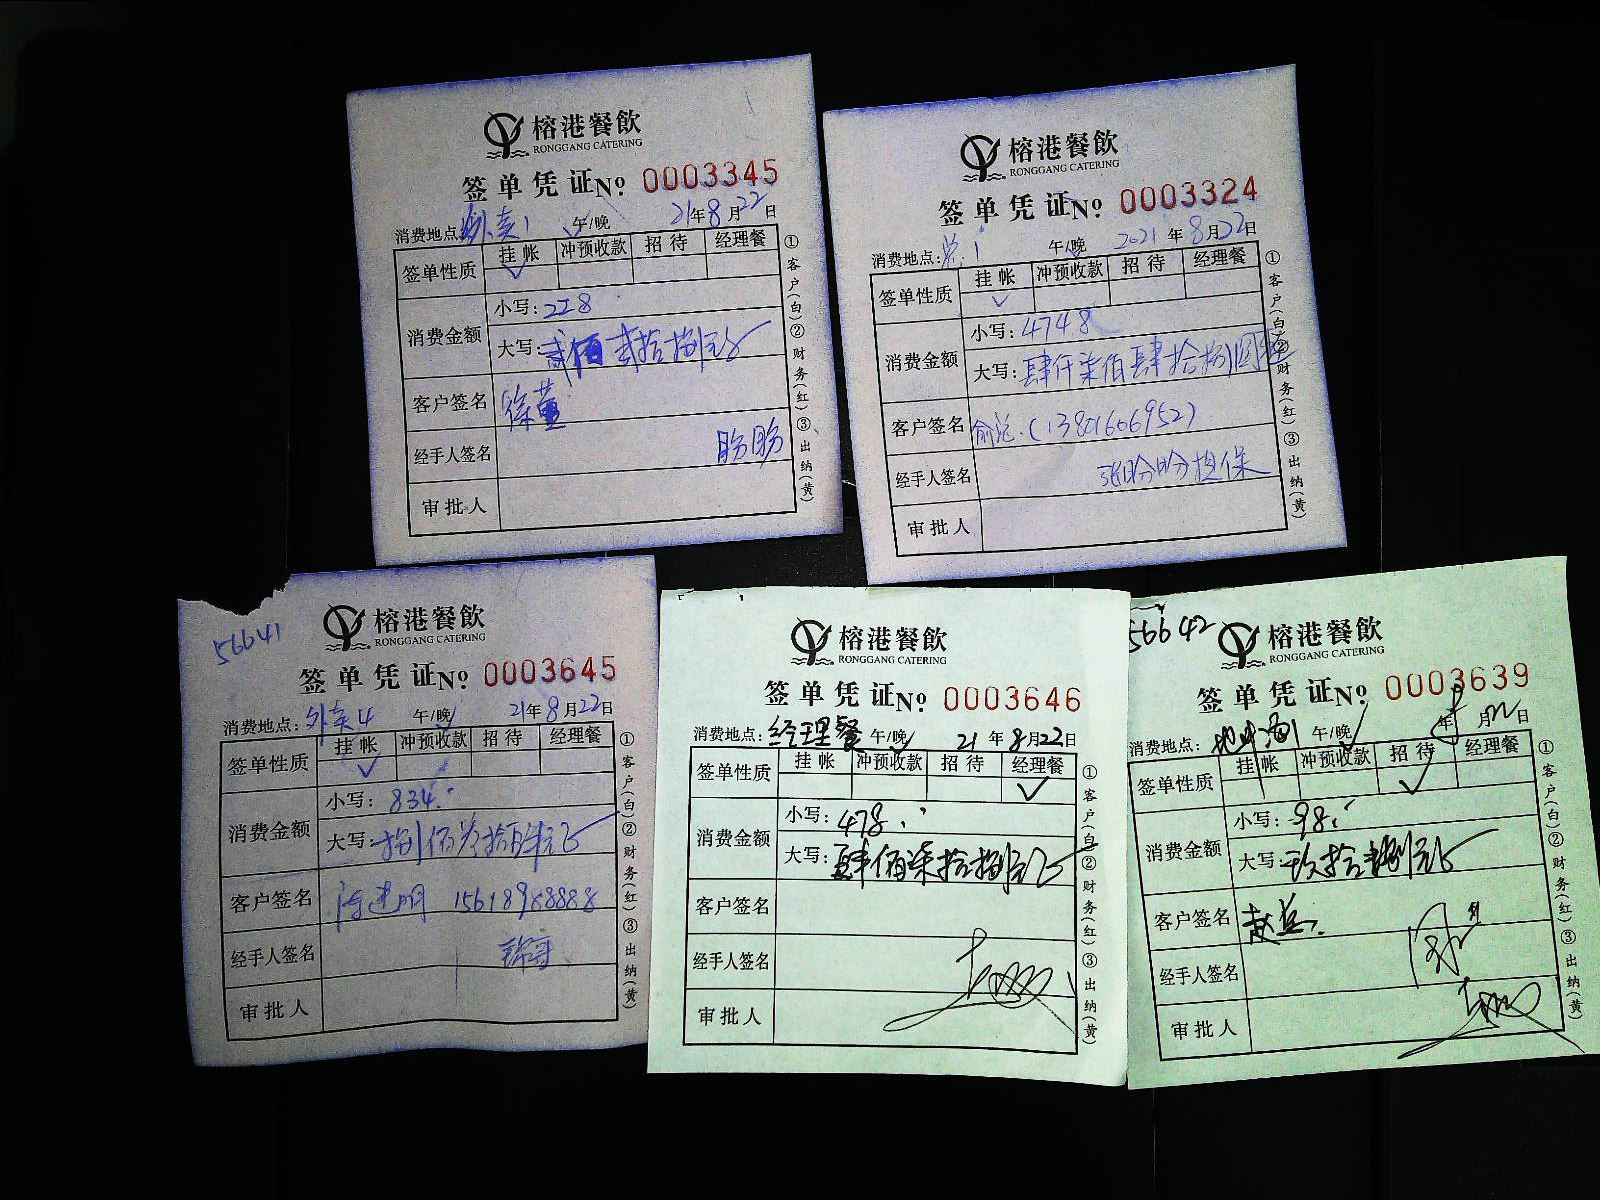 榕港餐飲
RONGGANG CATERING
签单凭证No. 0003345
消费地点:外卖1 午/晚 21年8月22日
签单性质 挂帐 冲预收款 招待 经理餐
消费金额
小写:228
大写:贰佰贰拾捌元
客户签名 徐
经手人签名
审批人
①客户(白)②财务(红)③出纳(黄)
榕港餐飲
RONGGANG CATERING
签单凭证No. 0003324
消费地点: 1 午/晚 2021年8月22日
签单性质 挂帐 冲预收款 招待 经理餐
消费金额
小写:4748
大写:肆仟柒佰肆拾捌圆
客户签名 俞总.(13801606952)
经手人签名 张盼盼担保
审批人
①客户(白)②财务(红)③出纳(黄)
56641
榕港餐飲
RONGGANG CATERING
签单凭证No. 0003645
消费地点:外卖4 午/晚 21年8月22日
签单性质 挂帐 冲预收款 招待 经理餐
消费金额
小写:834.
大写:捌佰叁拾肆元
客户签名 建明 15618988888
经手人签名
审批人
①客户(白)②财务(红)③出纳(黄)
榕港餐飲
RONGGANG CATERING
签单凭证No. 0003646
消费地点:经理餐 午/晚 21年8月22日
签单性质 挂帐 冲预收款 招待 经理餐
消费金额
小写:478.
大写:肆佰柒拾捌元
客户签名
经手人签名
审批人
①客户(白)②财务(红)③出纳(黄)
56642
榕港餐飲
RONGGANG CATERING
签单凭证No. 0003639
消费地点: 午/晚 年8月22日
签单性质 挂帐 冲预收款 招待 经理餐
消费金额
小写:98.
大写:玖拾捌元
客户签名 赵
经手人签名
审批人
①客户(白)②财务(红)③出纳(黄)